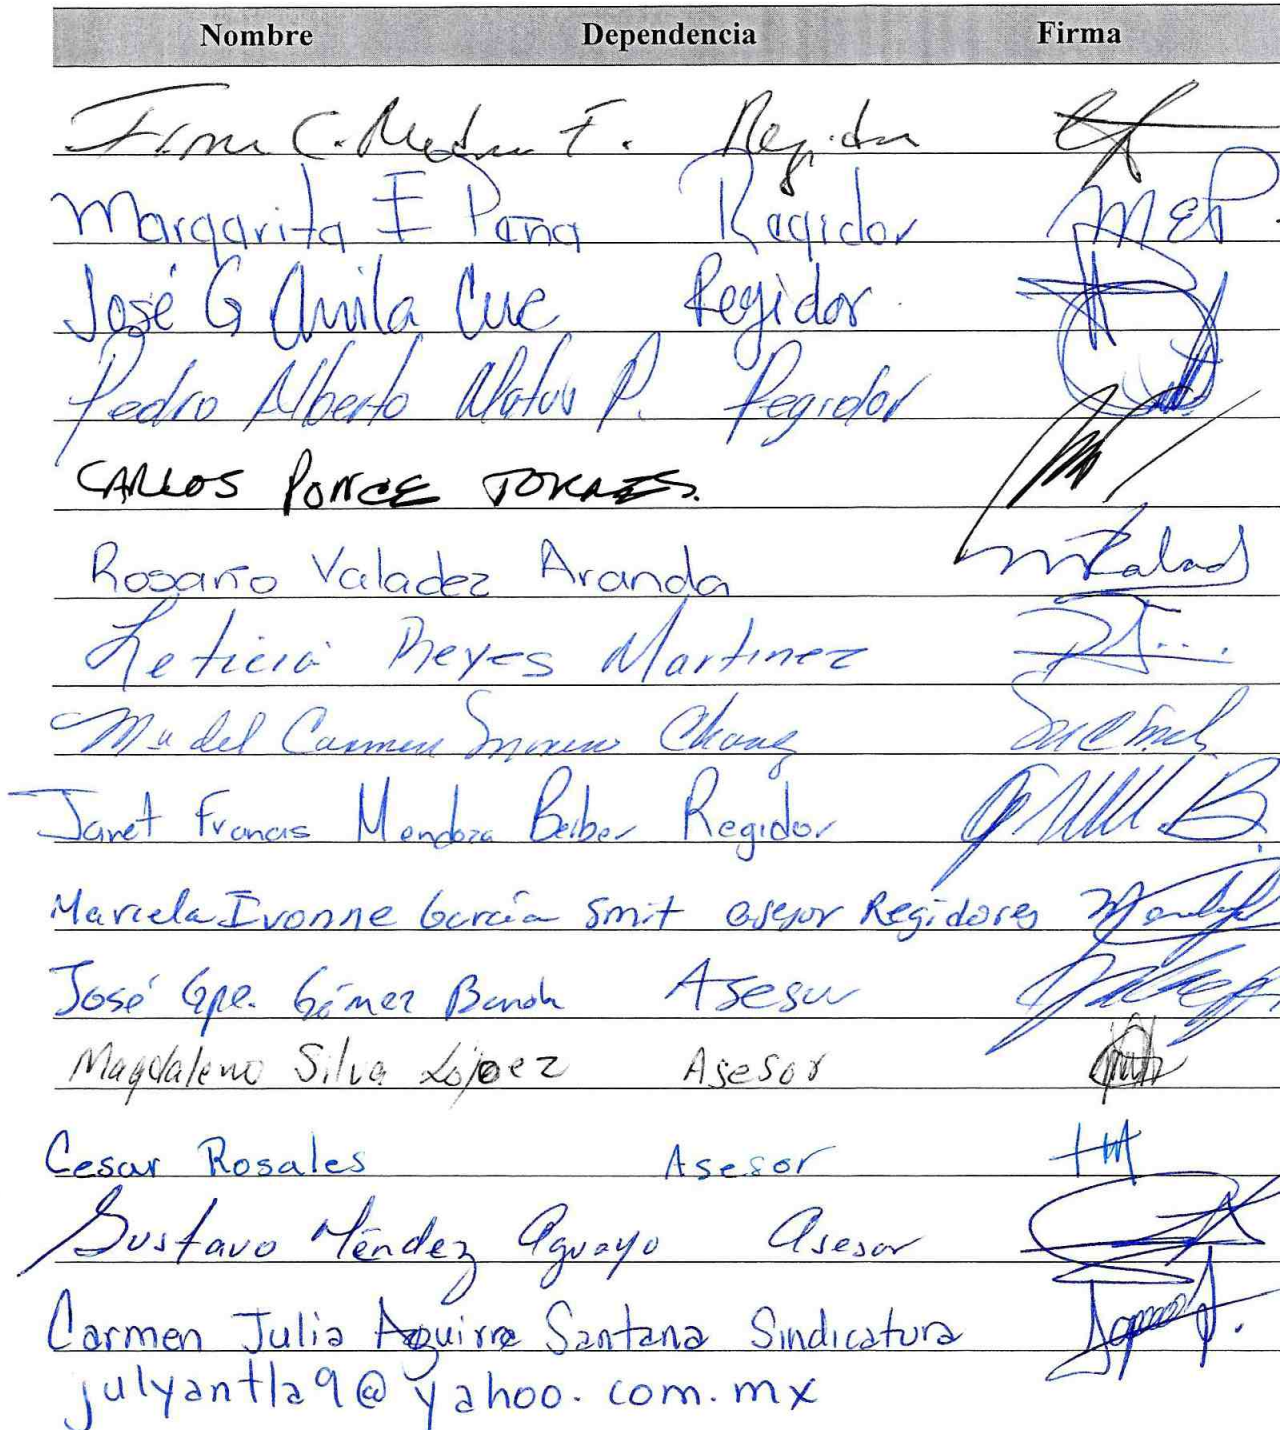 Nombre Dependencia Firma
Irma C. Medina F. Regidor
Margarita E Peña Regidor MEP.
José G Avila Cue Regidor
Pedro Alberto Alatorre P. Regidor
CARLOS PONCE TORRES.
Rosario Valadez Aranda
Leticia Reyes Martinez
Ma del Carmen Chavez
Janet Francis Mendoza Berber Regidor
Marcela Ivonne García Smit asesor Regidores
José Gpe. Gómez Banda Asesor
Magdaleno Silva López Asesor
Cesar Rosales Asesor
Gustavo Méndez Aguayo Asesor
Carmen Julia Aguirre Santana Sindicatura
julyantla9@yahoo.com.mx